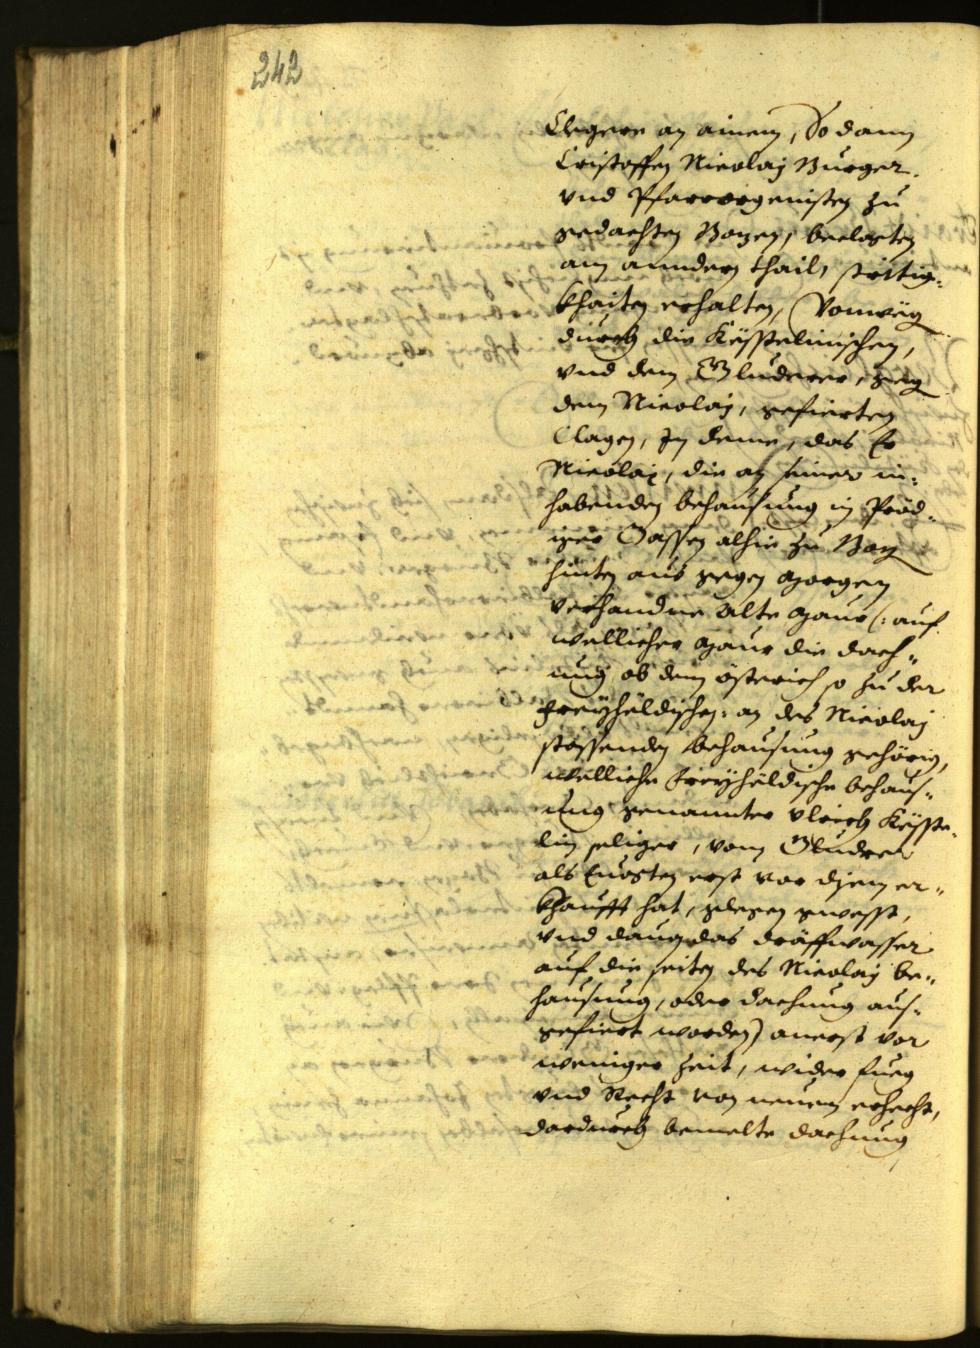 242
Clegere an ainem, So dann
Cristoffen Nicolaj Burger
vnd Pfarrorgenisten zu
gedachten Bozen, beclagten
am anndern thail, strittig-
khaiten erhalten, Vonweg
durch die Kässtelinischen,
vnd dem Gluderer, geg
dem Nicolaj, gefierten
Clagen, In deme, das Er
Nicolaj, die an seiner in-
habenden behausung in Pröd-
iger Gassen alhie zu Boz
hinten aus gegen morgen
verhandne alte maur (: auf
wellicher maur die dach-
ung ob dem össterich so zu der
Freyheldischen: an des Nicolaj
stossenden behausung gehörig,
welliche Freyheldische behaus-
ung genannter Vlrich Kässte-
lin seliger, vom Gludrer
als Curaten erst vor disem er-
khaufft hat, glegen gwesst,
vnd dauon das dräffwasser
auf die seiten des Nicolaj be-
hausung, oder dachung aus-
gefiert worden) anerst vor
weniger zeit, wider fueg
vnd Recht von neuem erhecht,
dardurch bemelte dachung